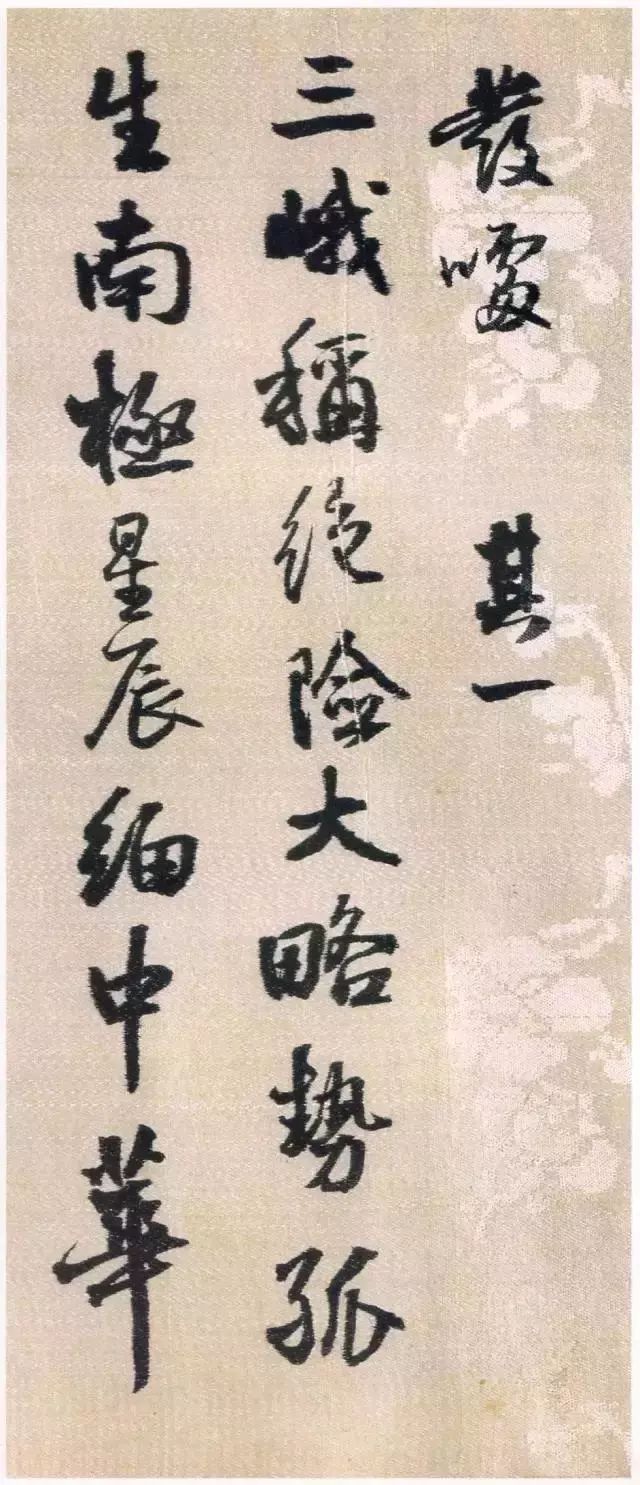 發 其一
三峨稱絕險大略勢孤
生南極星辰細中華